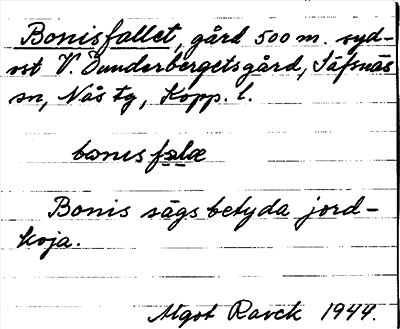 Bonisfallet, gård 500 m. syd-
ost V. Dunderbergetsgård, Säfsnäs
sn, Nås tg, Kopp. l.
bonisfalæ
Bonis sägs betyda jord-
koja.
Algot Ravck 1944.